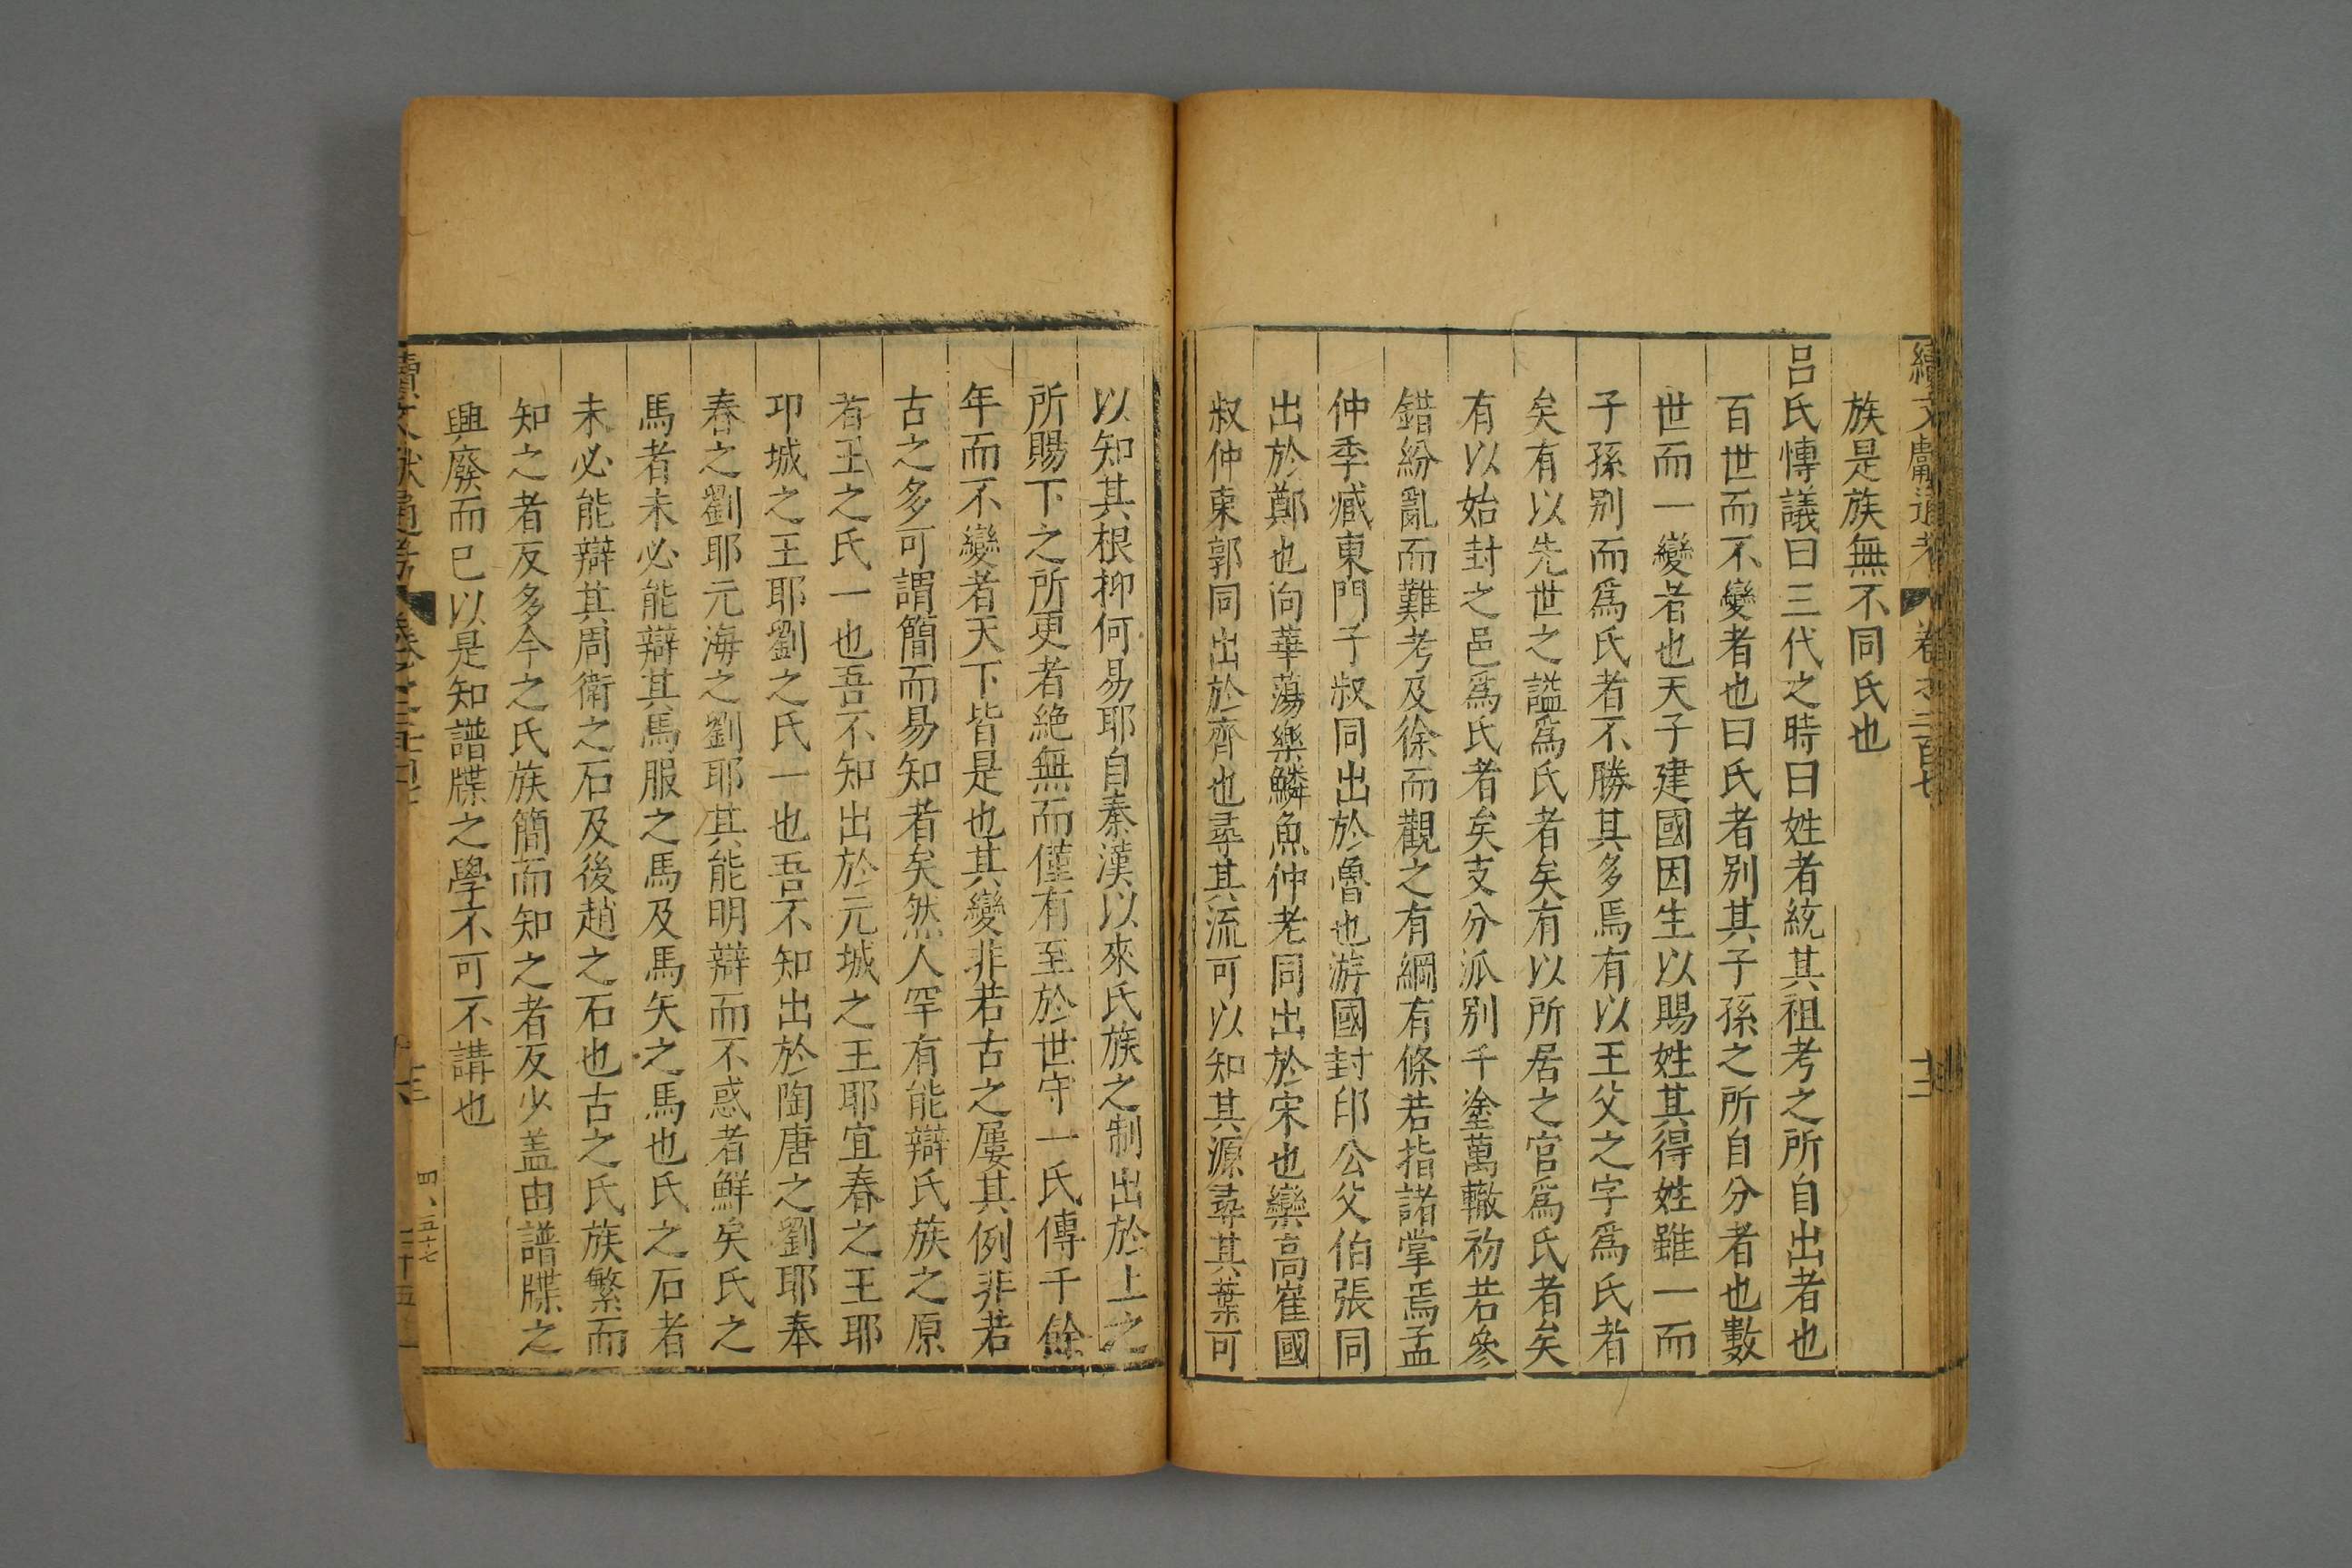 續文獻通考 卷之二百七 十三
族是族無不同氏也
呂氏愽議曰三代之時曰姓者統其祖考之所自出者也
百世而不變者也曰氏者别其子孫之所自分者也數
世而一變者也天子建國因生以賜姓其得姓雖一而
子孫别而爲氏者不勝其多焉有以王父之字爲氏者
矣有以先世之諡爲氏者矣有以所居之官爲氏者矣
有以始封之邑爲氏者矣支分派别千塗萬轍初若參
錯紛亂而難考及徐而觀之有綱有條若指諸掌焉孟
仲季臧東門子叔同出於魯也游國封印公父伯張同
出於鄭也向華蕩樂鱗魚仲老同出於宋也欒高崔國
叔仲東郭同出於齊也尋其流可以知其源尋其葉可
以知其根抑何易耶自秦漢以來氏族之制出於上之
所賜下之所更者絶無而僅有至於世守一氏傳千餘
年而不變者天下皆是也其變非若古之屢其例非若
古之多可謂簡而易知者矣然人罕有能辯氏族之原
者王之氏一也吾不知出於元城之王耶宜春之王耶
卭城之王耶劉之氏一也吾不知出於陶唐之劉耶奉
春之劉耶元海之劉耶其能明辯而不惑者鮮矣氏之
馬者未必能辯其馬服之馬及馬矢之馬也氏之石者
未必能辯其周衛之石及後趙之石也古之氏族繁而
知之者反多今之氏族簡而知之者反少盖由譜牒之
興廢而已以是知譜牒之學不可不講也
續文獻通考